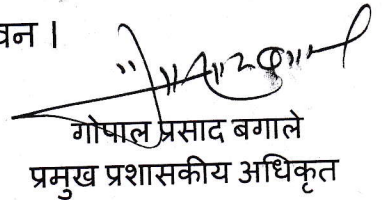 वन ।
गोपाल प्रसाद बगाले
प्रमुख प्रशासकीय अधिकृत